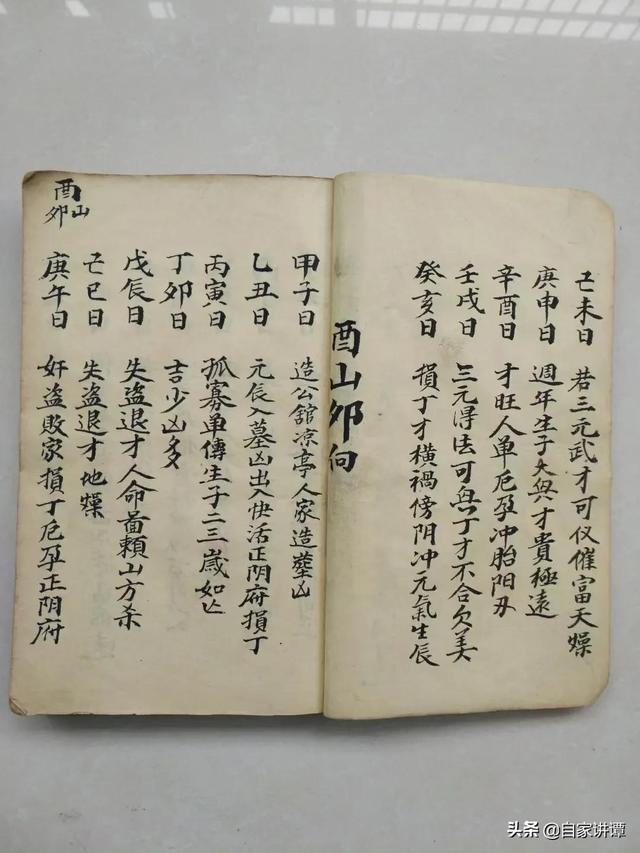 己未日 若三元武才可仪催富天燥
庚申日 週年生子大興才貴極遠
辛酉日 才旺人单厄孕冲胎阳刃
壬戌日 三元得法可興丁才不合欠美
癸亥日 損丁才橫禍傍阴冲元氣生辰
酉山夘向
甲子日 造公舘凉亭人家造塟凶
乙丑日 元辰入墓凶出入快活正阴府損丁
丙寅日 孤寡单傳生子二三歲如亡
丁夘日 吉少凶多
戊辰日 失盗退才人命啚頼山方杀
己巳日 失盗退才地燥
庚午日 奸盗敗家損丁厄孕正阴府
酉山夘
头条 @自家讲谭